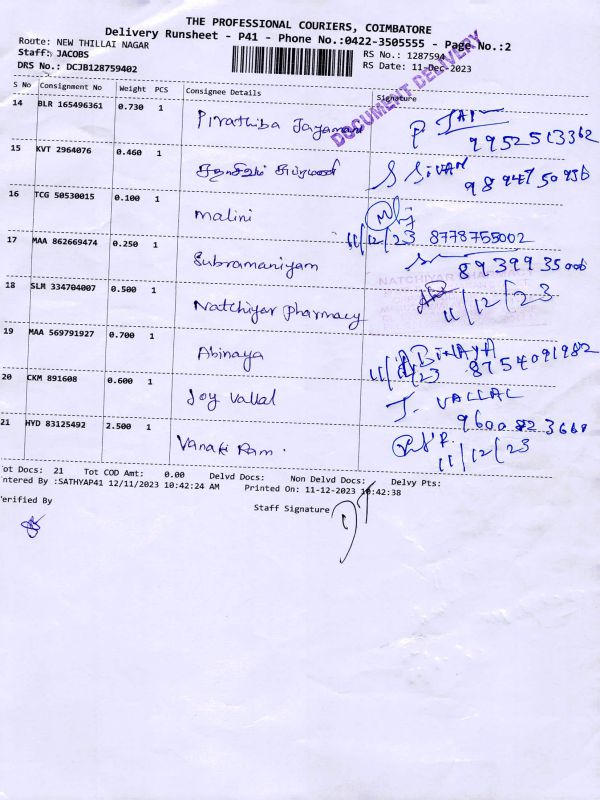 THE PROFESSIONAL COURIERS, COIMBATORE
Delivery Runsheet - P41 - Phone No.:0422-3505555 - Page No.:2
Route: NEW THILLAI NAGAR
Staff: JACOBS RS No.: 1287594
DRS No.: DCJB128759402 RS Date: 11-Dec-2023
DOCUMENT DELIVERY
S No Consignment No Weight PCS Consignee Details Signature
14 BLR 165496361 0.730 1 Pirathiba Jayamani P JAY
9952513362
15 KVT 2964076 0.460 1 சதாசிவம் சுப்ரமணி S SIVAN
16 TCG 50530015 0.100 1 Malini
11/12/23 8778755002
17 MAA 862669474 0.250 1 Subramaniyam
8939935006
NATCHIYAR PHARMACY
18 SLM 334704007 0.500 1 Natchiyar Pharmacy 11/12/23
19 MAA 569791927 0.700 1 Abinaya ABINAYA
8754091982
20 CKM 891608 0.600 1 Joy Vallal J. VALLAL
21 HYD 83125492 2.500 1 Vanaki Ram.
11/12/23
ot Docs: 21 Tot COD Amt: 0.00 Delvd Docs: Non Delvd Docs: Delvy Pts:
ntered By :SATHYAP41 12/11/2023 10:42:24 AM Printed On: 11-12-2023 10:42:38
erified By Staff Signature